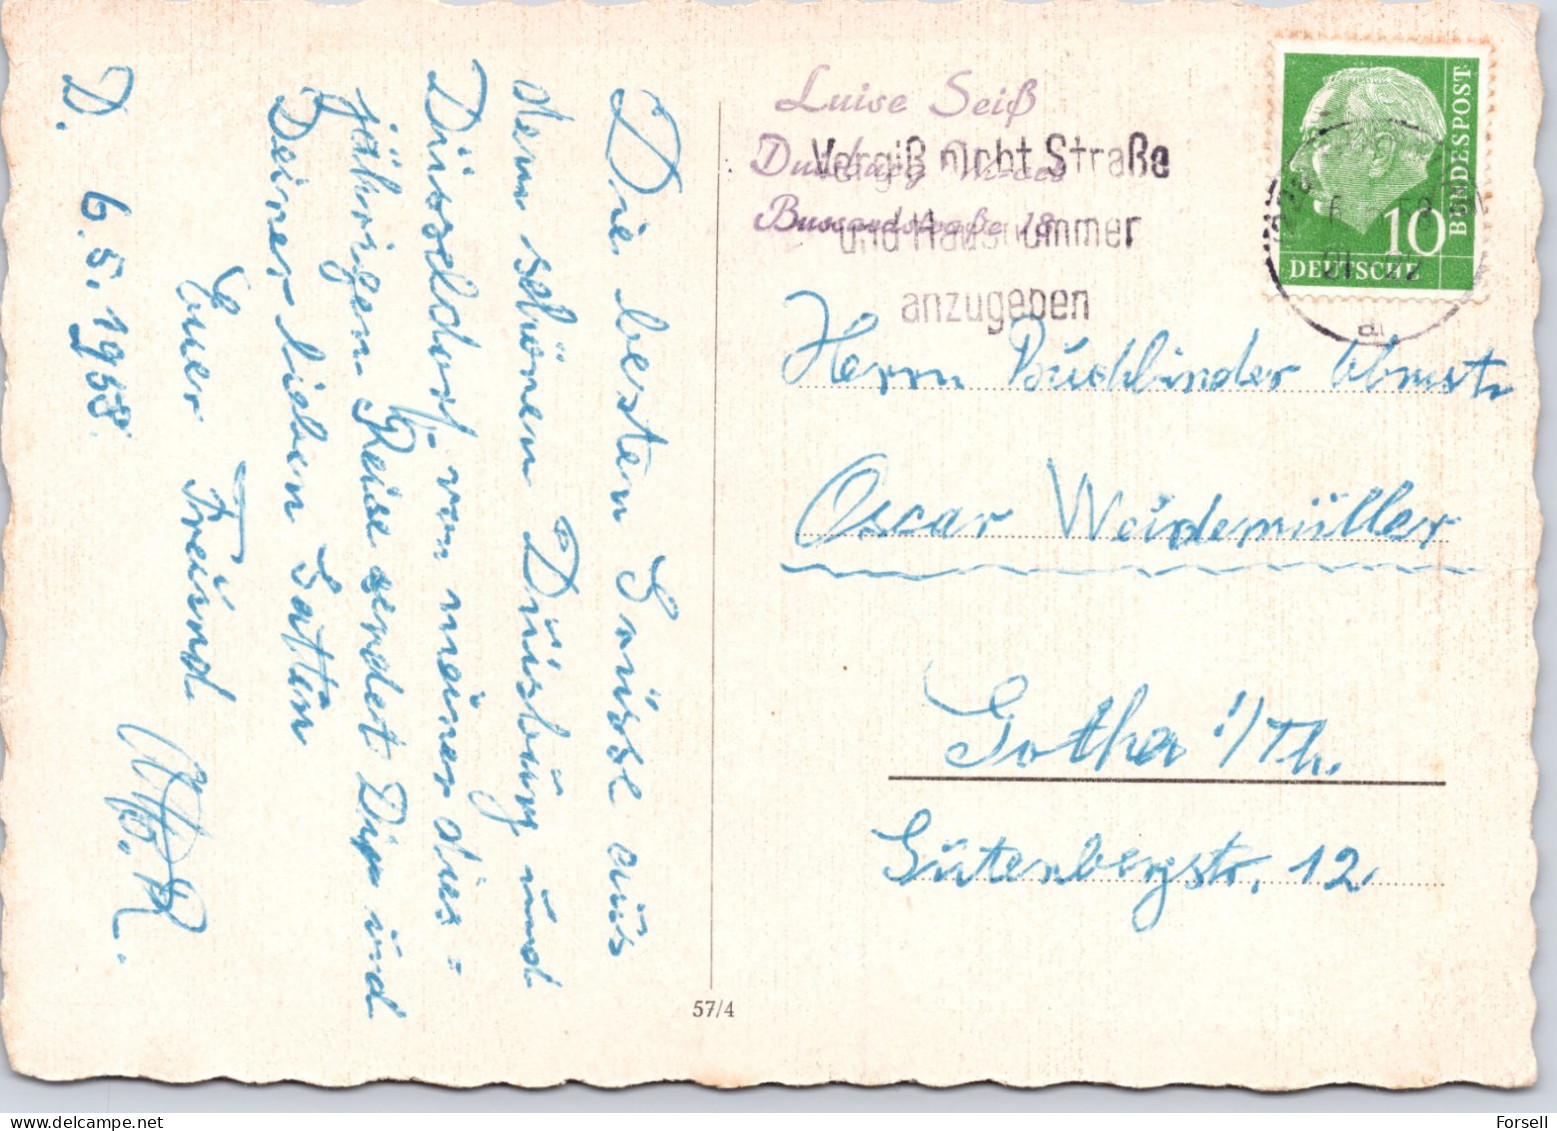 Die besten Grüsse aus
dem schönen Düisbürg ünd
Düsseldorf, von meiner dies=
jährigen Reise sendet Dir ünd
Deiner lieben Gattin
Euer Freünd
D. 6.5.1958.
57/4
Luise Seiß
Duisburg
Bussardstraße 18
Vergiß nicht Straße
und Hausnummer
anzugeben
DEUTSCHE
BUNDESPOST
10
Herrn Büchbinder Obmstr
Oscar Weidemüller
Gotha i/Th.
Gütenbergstr. 12
www.delcampe.net
Forsell